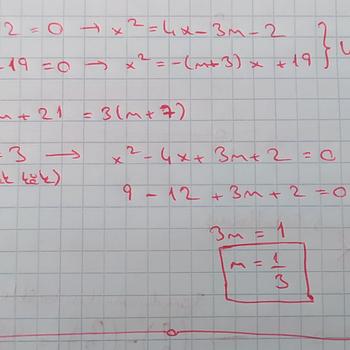 2 = 0 → x² = 4x - 3m - 2
-19 = 0 → x² = -(m+3)x + 19 }
m + 21 = 3(m+7)
= 3 → x² - 4x + 3m + 2 = 0
kök)
9 - 12 + 3m + 2 = 0
3m = 1
m = 1/3